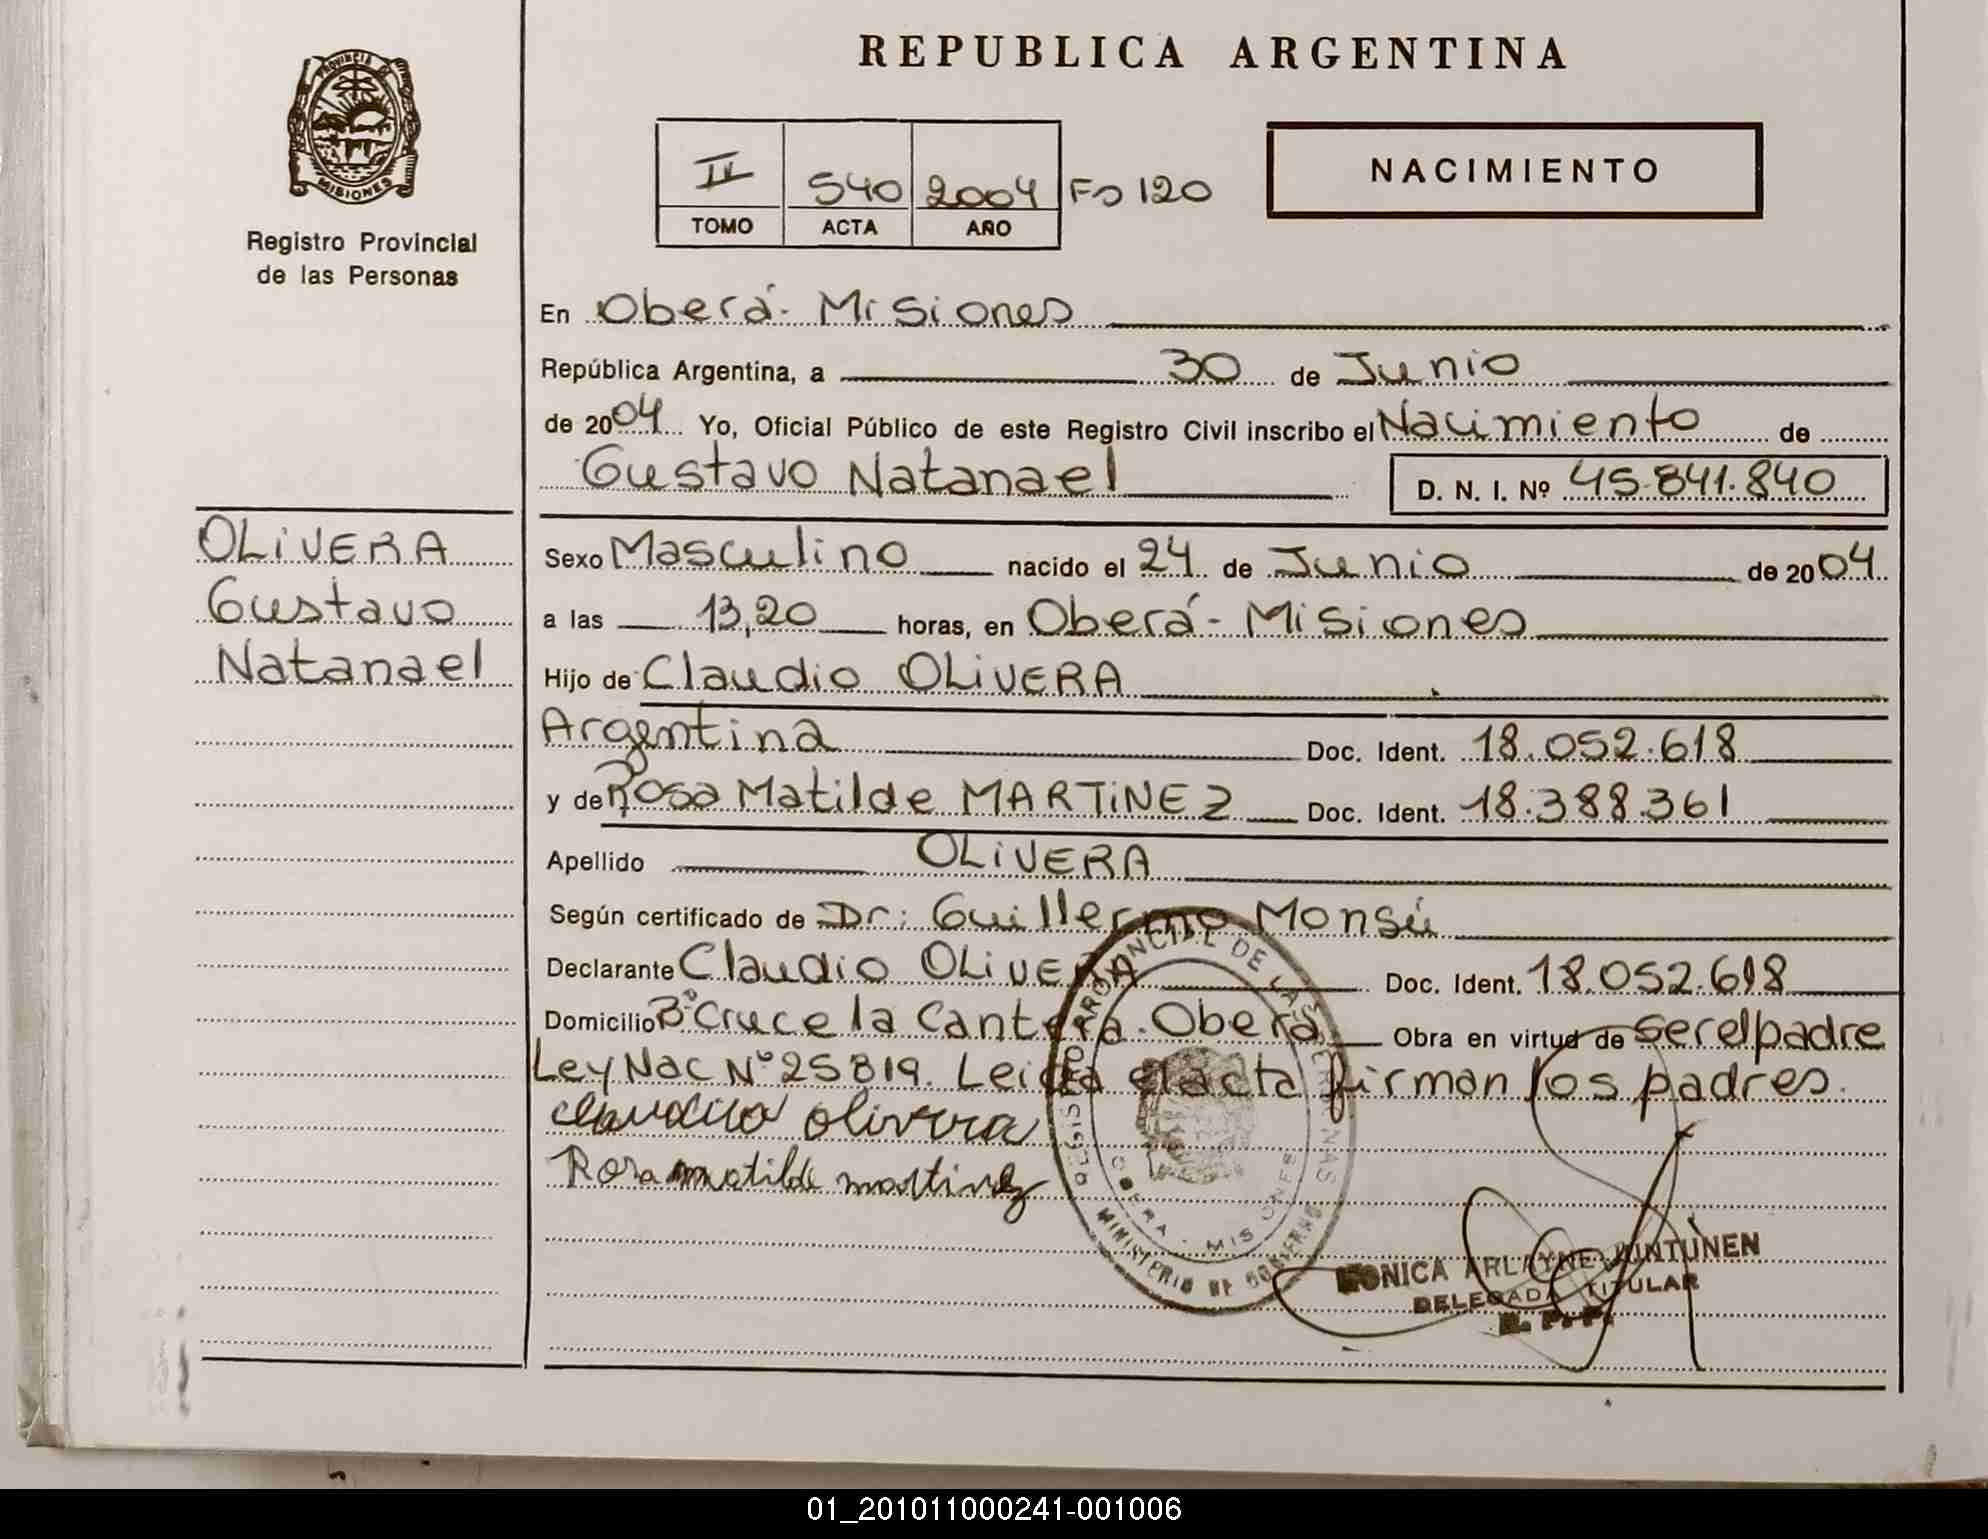 REPUBLICA ARGENTINA
PROVINCIA DE
MISIONES
Registro Provincial
de las Personas
II 540 2004 Fo 120
TOMO ACTA AÑO
NACIMIENTO
En Oberá - Misiones
República Argentina, a 30 de Junio
de 2004 Yo, Oficial Público de este Registro Civil inscribo el Nacimiento de
Gustavo Natanael D. N. I. Nº 45.841.840
OLIVERA
Gustavo
Natanael
Sexo Masculino nacido el 24 de Junio de 2004
a las 13,20 horas, en Oberá - Misiones
Hijo de Claudio OLIVERA
Argentina Doc. Ident. 18.052.618
y de Rosa Matilde MARTINEZ Doc. Ident. 18.388.361
Apellido OLIVERA
Según certificado de Dr: Guillermo Monsú
Declarante Claudio OLIVERA Doc. Ident. 18.052.618
Domicilio Bº Cruce la Cantera - Oberá Obra en virtud de ser el padre
Ley Nac Nº 25819. Leida el acta firman los padres.
Claudio Olivera
Rosa matilde martinez
REGISTRO PROVINCIAL DE LAS PERSONAS
OBERA - MISIONES
MINISTERIO DE GOBIERNO
MONICA ARLAYNE JUNTUNEN
DELEGADA TITULAR
R. P. P.
01_201011000241-001006